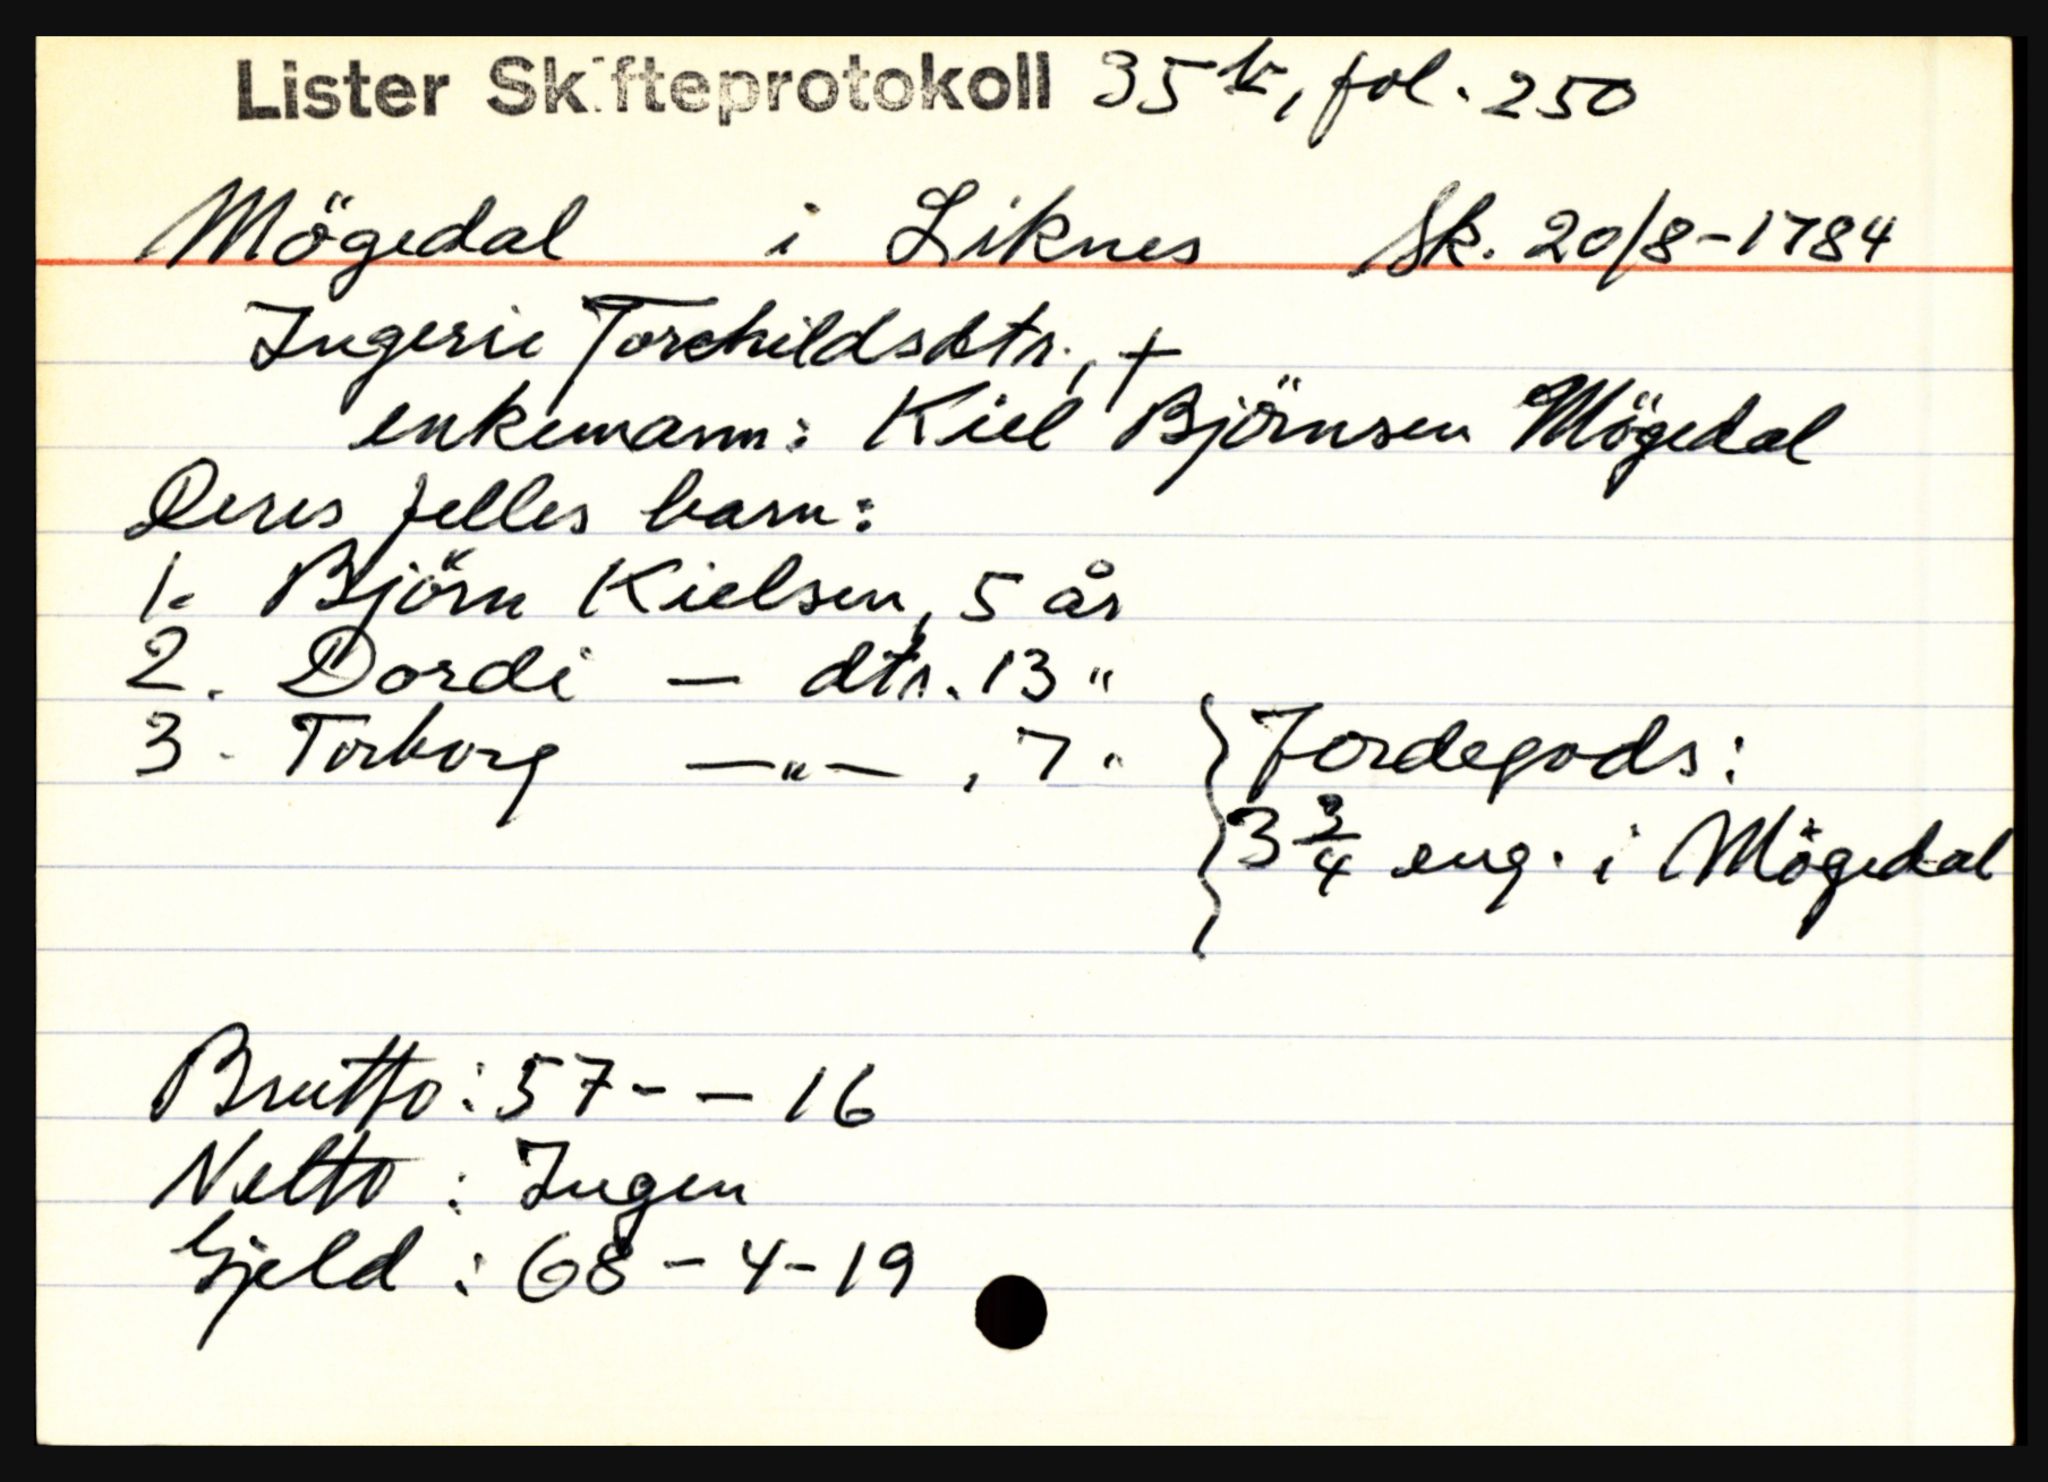 Lister Skifteprotokoll 35b, fol. 250
Mögedal i Liknes Sk. 20/8-1784
Ingerie Torchildsdtr., +
enkemann: Kiel Björnsen Mögedal
Deres felles barn:
1. Björn Kielsen, 5 år
2. Dordi — dtr. 13 "
3. Torborg — " — , 7 "
Jordegods:
3 3/4 eng. i Mögedal
Brutto: 57 - — 16
Netto : Ingen
Gjeld : 68 - 4 - 19